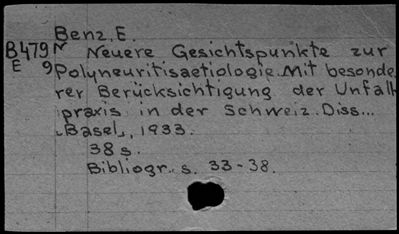 Benz, E.
B479 N Neuere Gesichtspunkte zur
E 9 Polyneuritisaetiologie. Mit besonde
rer Berücksichtigung der Unfall
praxis in der Schweiz. Diss...
Basel, 1933.
38 s.
Bibliogr. s. 33-38.